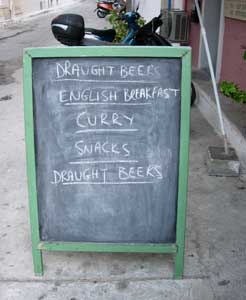 DRAUGHT BEERS
ENGLISH BREAKFAST
CURRY
SNACKS
DRAUGHT BEERS